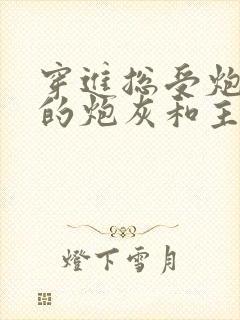 穿进总受炮
的炮灰和主
燈下雪月